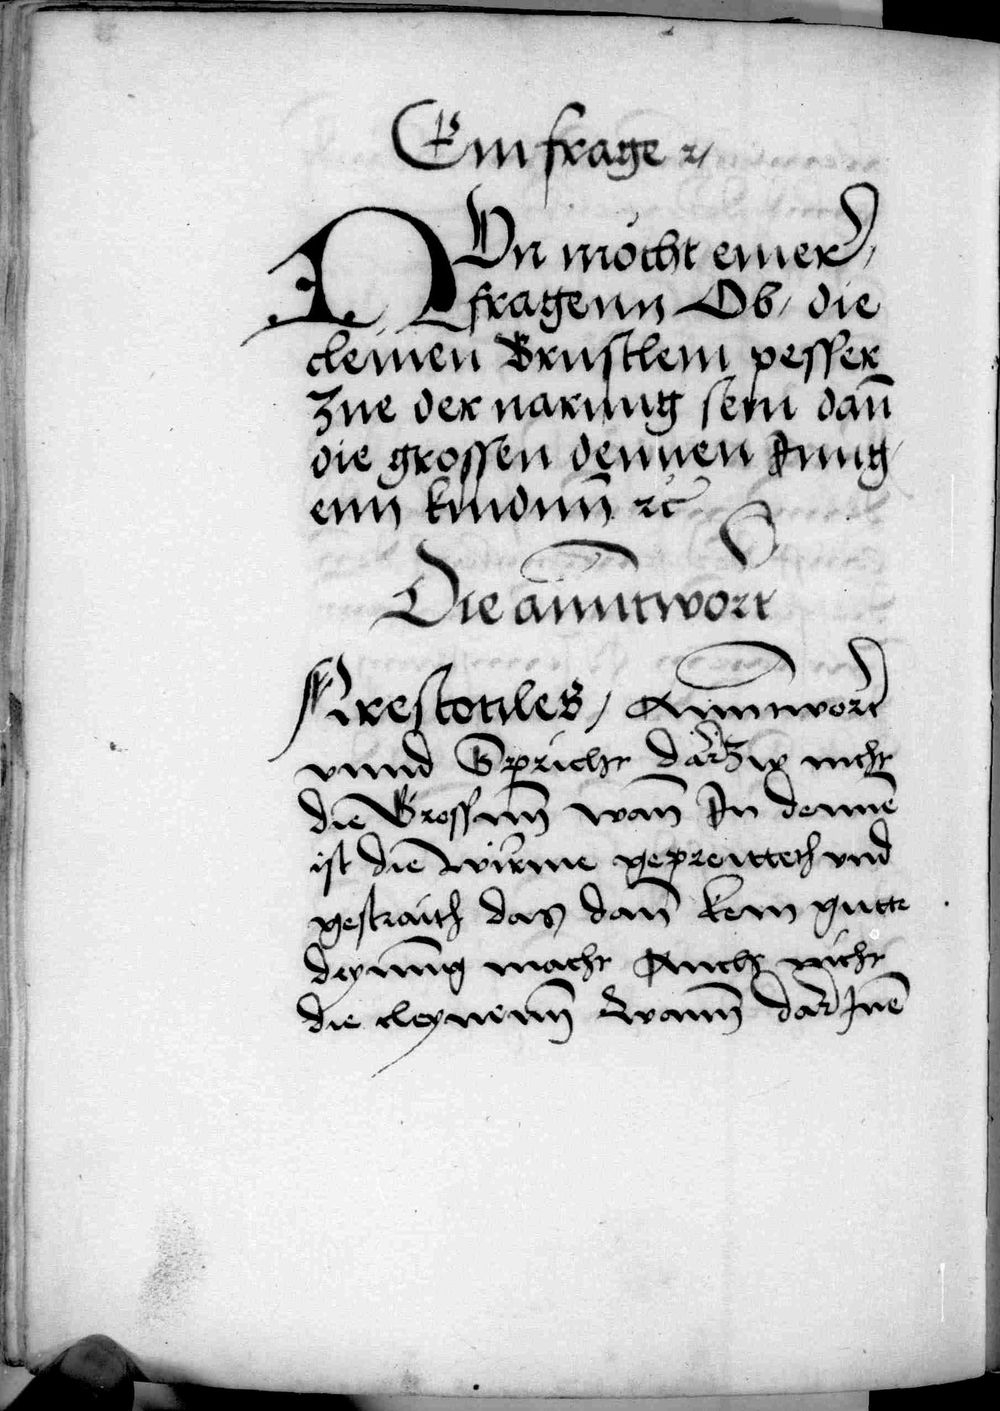 Ein frage ⁊c/
NUn möcht einer /
fragenn Ob / die
cleinen Brustlein pesser
Zue der narung sein dan̄
die grossen dennen Jung
enn kindnn̄ ⁊c
Die anntwortt
Arestotiles / Anntwortt
vnnd Spricht darzw nicht
die Grossnn̄ wan̄ Jn dennē
ist die wirme gepreittet vnd
gestraith das dan̄ kein gutte
deyung macht Auch nicht
die cleynenn̄ Wann̄ dar Jnē